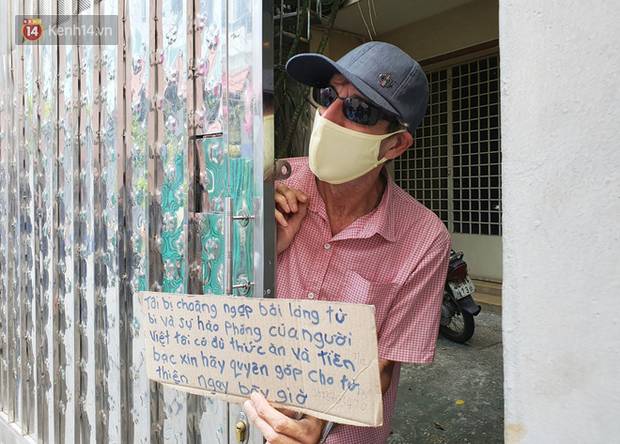 14 Kenh14.vn
Tôi bị choáng ngợp bởi lòng từ
bi và sự hào Phóng của người
Việt tôi có đủ thức ăn và tiền
bạc xin hãy quyên góp cho từ
thiện ngay bây giờ